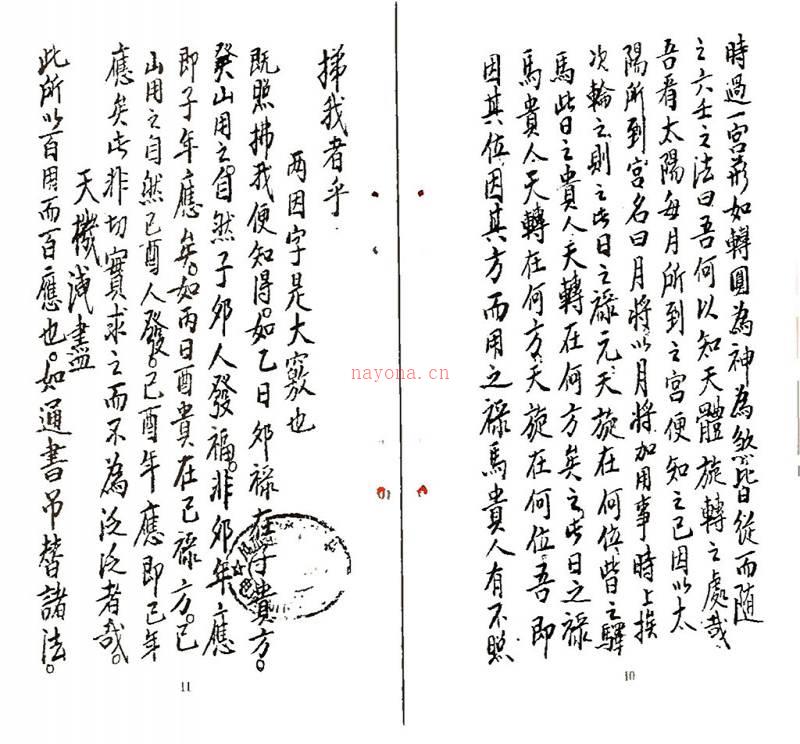 時過一宮형如轉圓為神為煞皆從而随
之六壬之法曰吾何以知天體旋轉之處哉
吾看太陽每月所到之宮便知之已因以太
陽所到宮名曰月將以月將加用事時上挨
次輪之則之此日之祿元天旋在何位皆日之驛
馬此日之貴人天轉在何方矣之此日之祿
馬貴人天轉在何方天旋在何位吾即
因其位因其方而用之祿馬貴人有不照
10
挮我者乎
兩因字是大竅也
既照拂我便知得。如乙日卯祿在子貴方。
癸山用之。自然子卯人發福。非卯年應
即子年應矣。如丙日酉貴在巳祿方。巳
山用之自然巳酉人發。巳酉年應即巳年
應矣此非切實求之而不為泛泛者哉。
天機洩盡
此所以百用而百應也。如通書吊替諸法。
11
nayona.cn